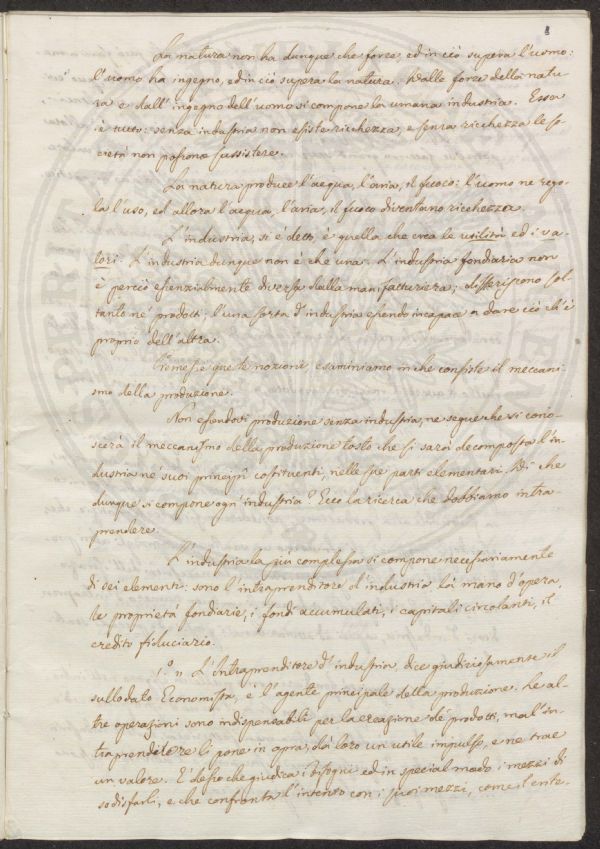 La natura non ha dunque che forze ed in ciò supera l'uomo:
l'uomo ha ingegno, ed in ciò supera la natura. Dalle forze della natu-
ra e dall'ingegno dell'uomo si compone la umana industria. Essa
è tutto: senza industria non esiste ricchezza, e senza ricchezza le so-
cietà non possono sussistere.
La natura produce l'acqua, l'aria, il fuoco: l'uomo ne rego-
la l'uso, ed allora l'acqua, l'aria, il fuoco diventano ricchezza.
L'industria, si è detto, è quella che crea le utilità ed i va-
lori. L'industria dunque non è che una. L'industria fondiaria non
è perciò essenzialmente diversa dalla manifatturiera; differiscono sol-
tanto ne' prodotti; l'una sorta d'industria essendo incapace a dare ciò ch'è
proprio dell'altra.
Premesse queste nozioni esaminiamo in che consiste il meccani-
smo della produzione.
Non essendovi produzione senza industria, ne segue che si cono-
scerà il meccanismo della produzione tosto che si sarà decomposta l'in-
dustria ne' suoi principî costituenti, nelle sue parti elementari. Di che
dunque si compone ogni industria? Ecco la ricerca che dobbiamo intra
prendere.
L'industria la più complessa si compone necessariamente
di sei elementi: sono l'intraprenditore d'industria la mano d'opera,
le proprietà fondiarie, i fondi accumulati, i capitali circolanti, il
credito fiduciario.
1.° " L'Intraprenditore d'industria, dice giudiziosamente il
sullodato Economista, è l'agente principale della produzione. Le al-
tre operazioni sono indispensabili per la creazione de' prodotti, ma l'in-
traprenditore li pone in opra, dà loro un utile impulso, e ne trae
un valore. È desso che giudica i bisogni ed in special modo i mezzi di
sodisfarli, e che confronta l'intento con i suoi mezzi,